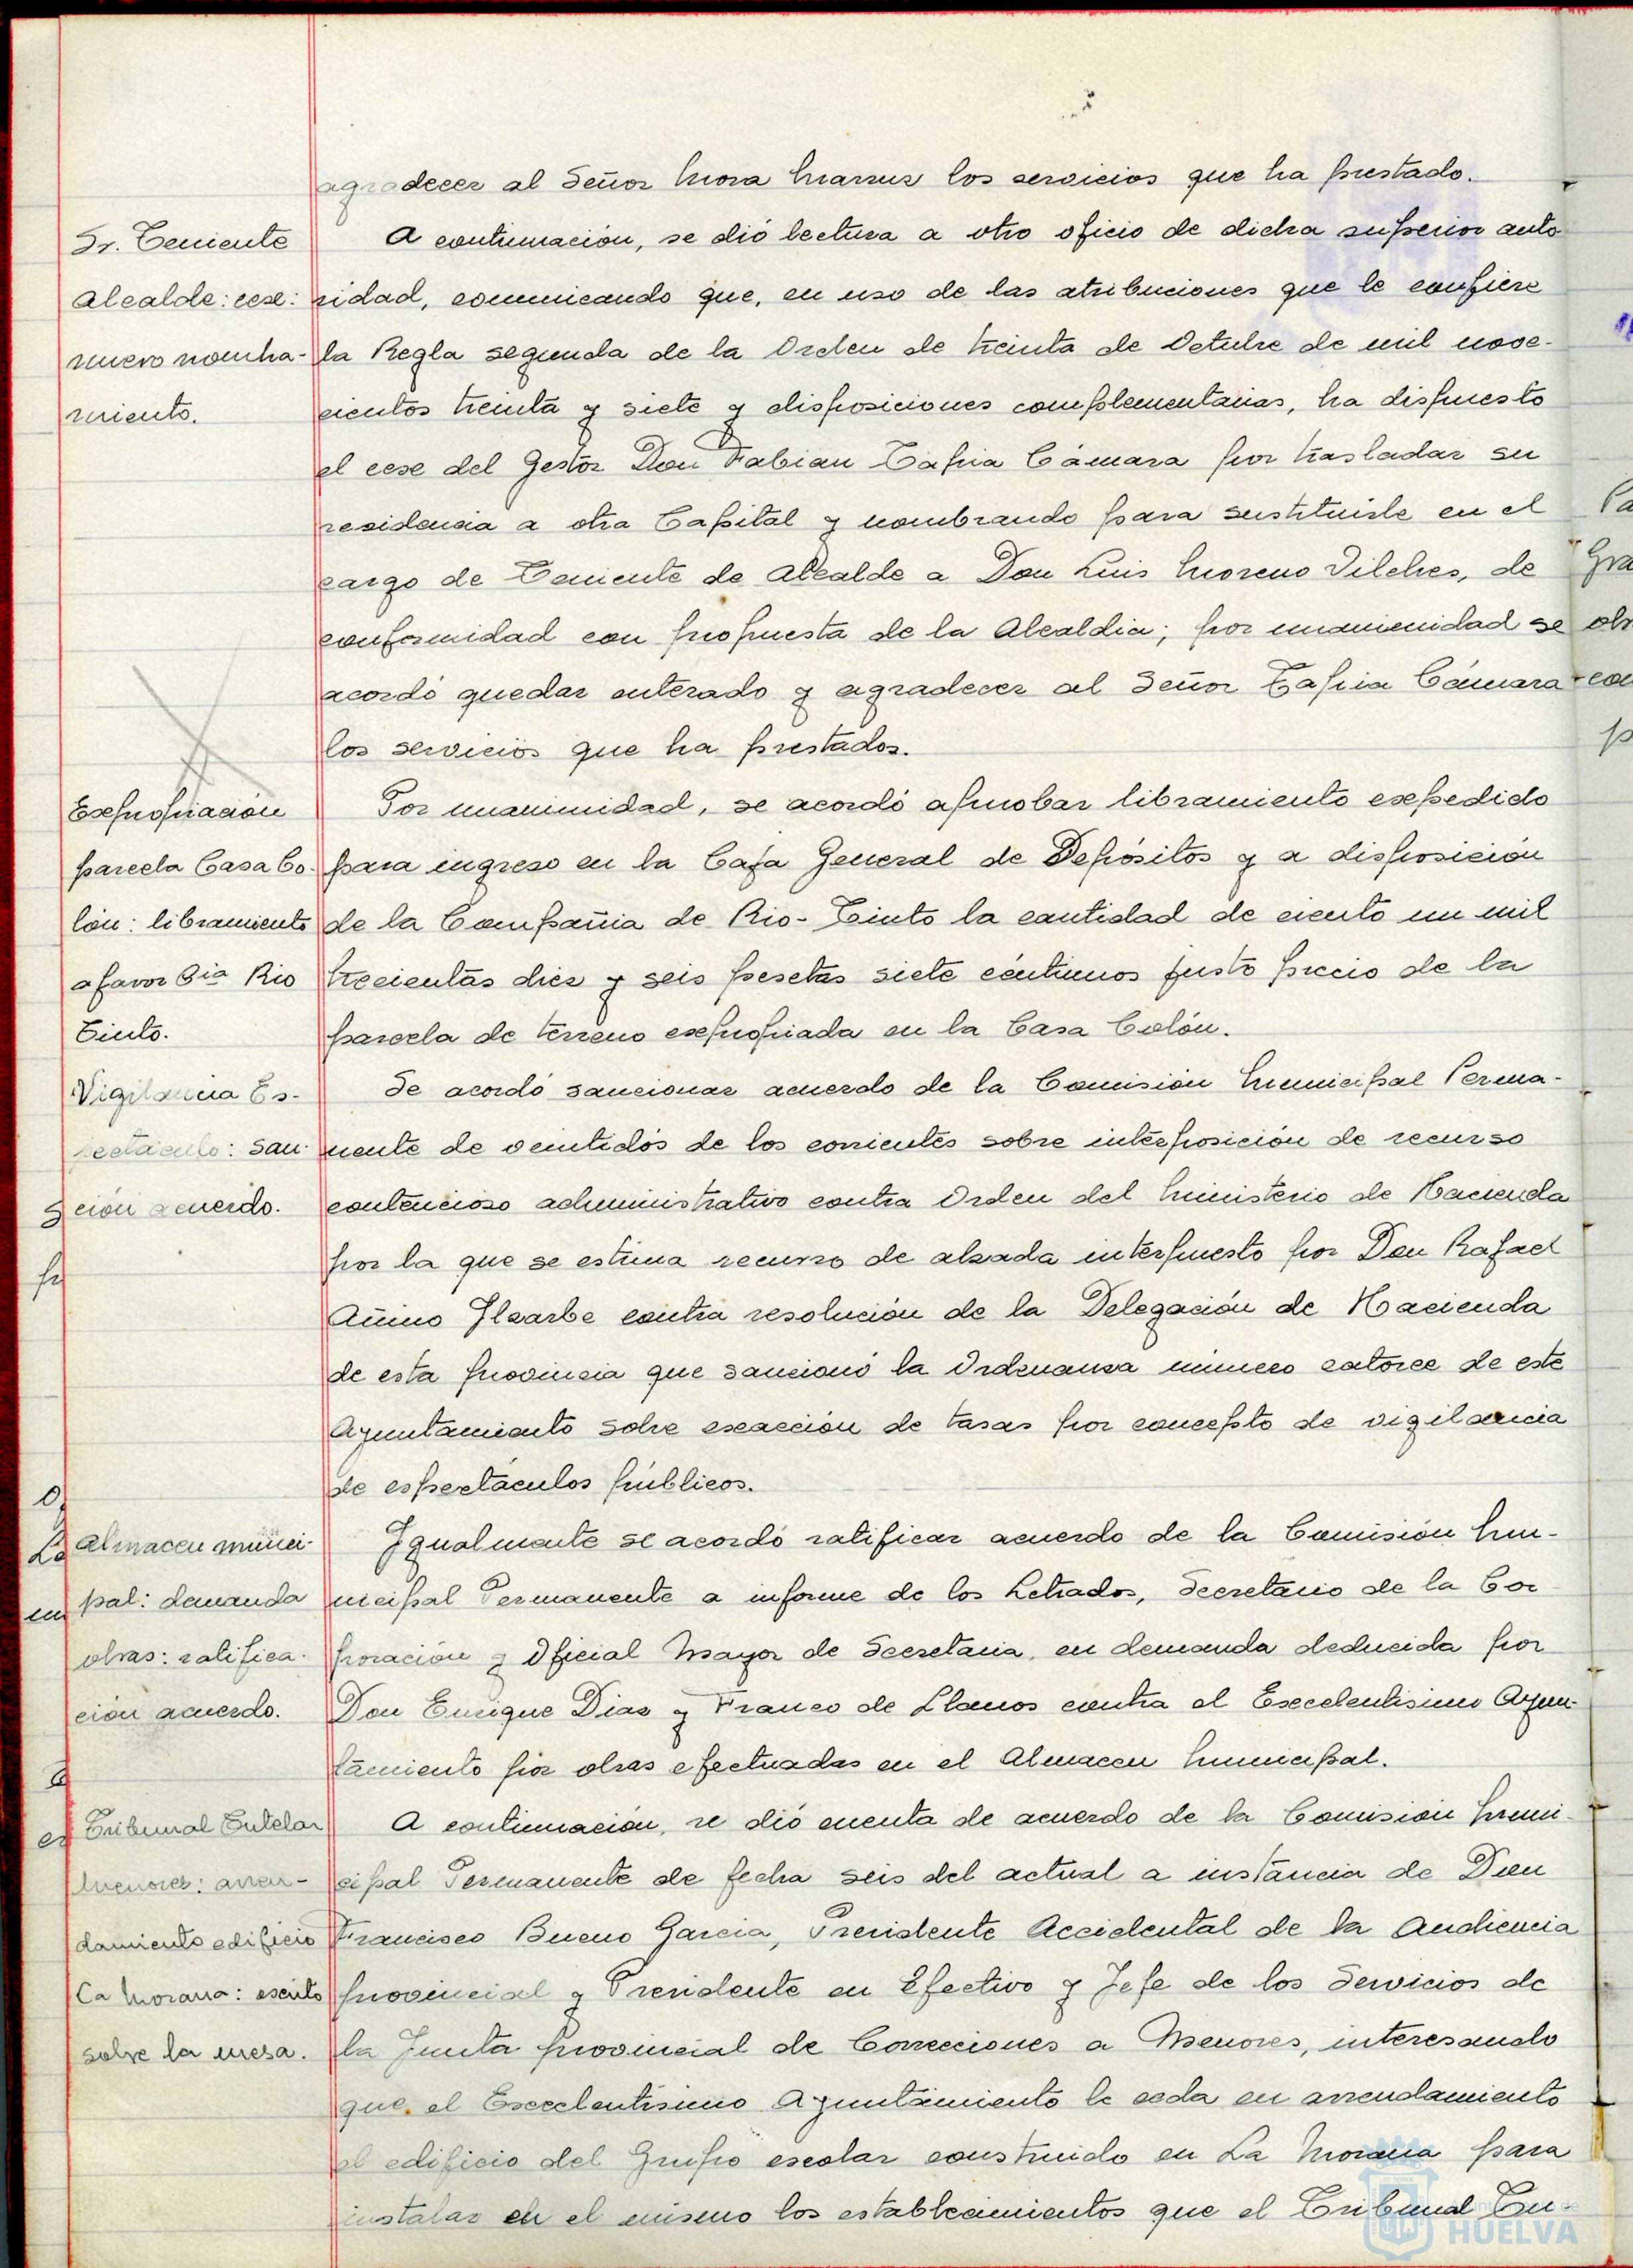 agradecer al Señor Mora Marrus los servicios que ha prestado.
Sr. Teniente
Alcalde: cese:
nuevo nombra-
miento.
A continuación, se dió lectura a otro oficio de dicha superior auto
ridad, comunicando que, en uso de las atribuciones que le confiere
la Regla segunda de la Orden de treinta de Octubre de mil nove-
cientos treinta y siete y disposiciones complementarias, ha dispuesto
el cese del Gestor Don Fabian Tapia Cámara por trasladar su
residencia a otra Capital y nombrando para sustituirle en el
cargo de Teniente de Alcalde a Don Luis Moreno Vilches, de
conformidad con propuesta de la Alcaldia; por unanimidad se
acordó quedar enterado y agradecer al Señor Tapia Cámara
los servicios que ha prestados.
Expropiación
parcela Casa Co-
lón: libramiento
a favor Cia Rio
Tinto.
Por unanimidad, se acordó aprobar libramiento expedido
para ingreso en la Caja General de Depósitos y a disposición
de la Compañia de Rio-Tinto la cantidad de ciento un mil
trecientas diez y seis pesetas siete céntimos justo precio de la
parcela de terreno expropiada en la Casa Colón.
Vigilancia Es-
pectáculo: san-
ción acuerdo.
Se acordó sancionar acuerdo de la Comisión Municipal Perma-
nente de veintidós de los corrientes sobre interposición de recurso
contencioso administrativo contra Orden del Ministerio de Hacienda
por la que se estima recurso de alzada interpuesto por Don Rafael
Añino Ilzarbe contra resolución de la Delegación de Hacienda
de esta provincia que sancionó la Ordenanza número catorce de este
Ayuntamiento sobre exacción de tasas por concepto de vigilancia
de espectáculos públicos.
Almacen munici-
pal: demanda
obras: ratifica-
ción acuerdo.
Igualmente se acordó ratificar acuerdo de la Comisión Mu-
nicipal Permanente a informe de los Letrados, Secretario de la Cor
poración y Oficial Mayor de Secretaria, en demanda deducida por
Don Enrique Diaz y Franco de Llanos contra el Excelentisimo Ayun-
tamiento por obras efectuadas en el Almacen Municipal.
Tribunal Tutelar
Menores: arren-
damiento edificio
La Morana: escrito
sobre la mesa.
A continuación, se dió cuenta de acuerdo de la Comisión Muni-
cipal Permanente de fecha seis del actual a instancia de Don
Francisco Bueno Garcia, Presidente Accidental de la Audiencia
provincial y Presidente en Efectivo y Jefe de los Servicios de
la Junta provincial de Correcciones a Menores, interesando
que, el Excelentisimo Ayuntamiento le ceda en arrendamiento
el edificio del Grupo escolar construido en La Morana para
instalar en el mismo los establecimientos que el Tribunal Tu-
HUELVA